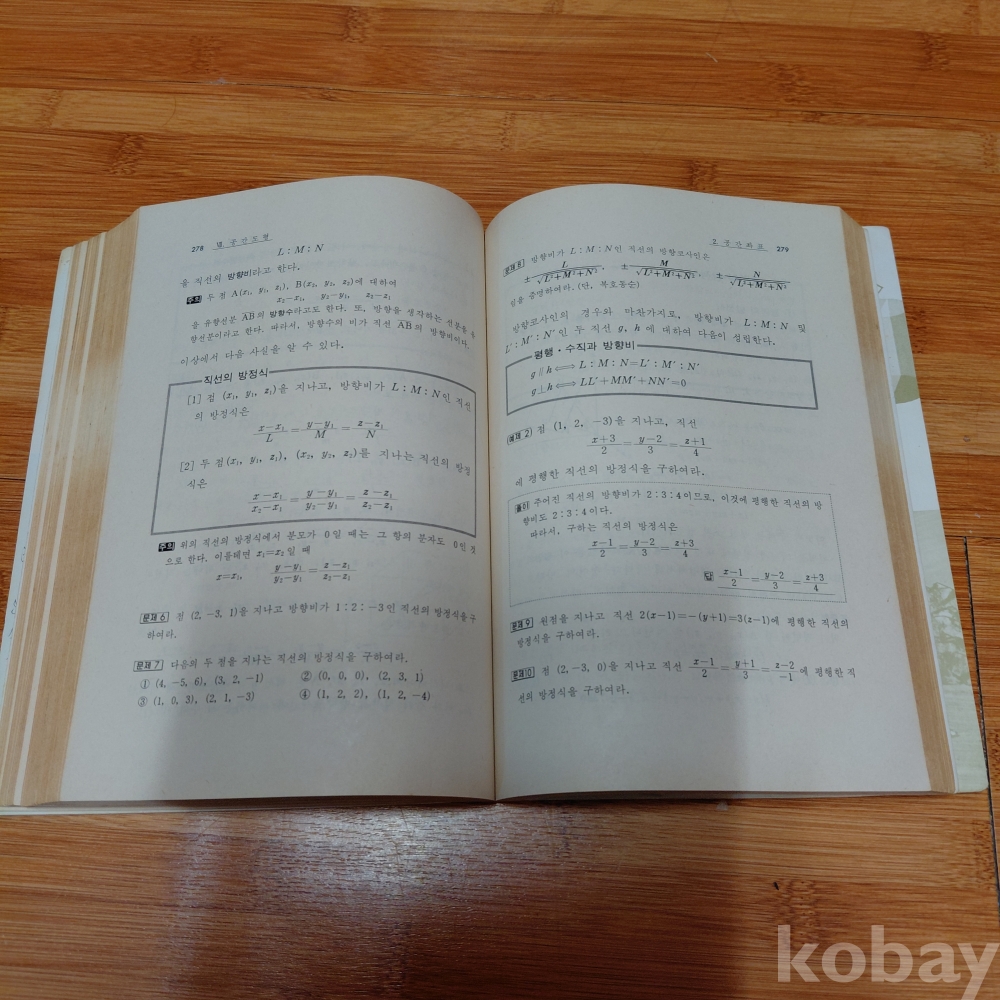 278 Ⅷ 공간도형
L : M : N
을 직선의 방향비라고 한다.
주의 두 점 A(x₁, y₁, z₁), B(x₂, y₂, z₂)에 대하여
x₂−x₁, y₂−y₁, z₂−z₁
을 유향선분 AB의 방향수라고도 한다. 또, 방향을 생각하는 선분을 유
향선분이라고 한다. 따라서, 방향수의 비가 직선 AB의 방향비이다.
이상에서 다음 사실을 알 수 있다.
직선의 방정식
[1] 점 (x₁, y₁, z₁)을 지나고, 방향비가 L : M : N인 직선
의 방정식은
(x−x₁)/L = (y−y₁)/M = (z−z₁)/N
[2] 두 점(x₁, y₁, z₁), (x₂, y₂, z₂)를 지나는 직선의 방정
식은
(x−x₁)/(x₂−x₁) = (y−y₁)/(y₂−y₁) = (z−z₁)/(z₂−z₁)
주의 위의 직선의 방정식에서 분모가 0일 때는 그 항의 분자도 0인 것
으로 한다. 이를테면 x₁=x₂일 때
x=x₁, (y−y₁)/(y₂−y₁) = (z−z₁)/(z₂−z₁)
문제 6 점 (2, −3, 1)을 지나고 방향비가 1 : 2 : −3인 직선의 방정식을 구
하여라.
문제 7 다음의 두 점을 지나는 직선의 방정식을 구하여라.
① (4, −5, 6), (3, 2, −1) ② (0, 0, 0), (2, 3, 1)
③ (1, 0, 3), (2, 1, −3) ④ (1, 2, 2), (1, 2, −4)
2 공간좌표 279
문제 8 방향비가 L : M : N인 직선의 방향코사인은
±L/√(L²+M²+N²), ±M/√(L²+M²+N²), ±N/√(L²+M²+N²)
임을 증명하여라. (단, 복호동순)
방향코사인의 경우와 마찬가지로, 방향비가 L : M : N 및
L′ : M′ : N′인 두 직선 g, h에 대하여 다음이 성립한다.
평행·수직과 방향비
g∥h⟺L : M : N=L′ : M′ : N′
g⊥h⟺LL′+MM′+NN′=0
예제 2 점 (1, 2, −3)을 지나고, 직선
(x+3)/2 = (y−2)/3 = (z+1)/4
에 평행한 직선의 방정식을 구하여라.
풀이 주어진 직선의 방향비가 2 : 3 : 4이므로, 이것에 평행한 직선의 방
향비도 2 : 3 : 4이다.
따라서, 구하는 직선의 방정식은
(x−1)/2 = (y−2)/3 = (z+3)/4
답 (x−1)/2 = (y−2)/3 = (z+3)/4
문제 9 원점을 지나고 직선 2(x−1)=−(y+1)=3(z−1)에 평행한 직선의
방정식을 구하여라.
문제 10 점 (2, −3, 0)을 지나고 직선 (x−1)/2 = (y+1)/3 = (z−2)/−1 에 평행한 직
선의 방정식을 구하여라.
kobay